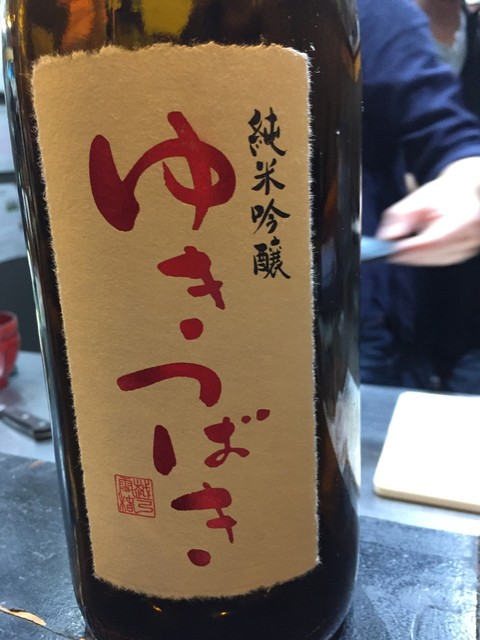 純米吟醸
ゆきつばき